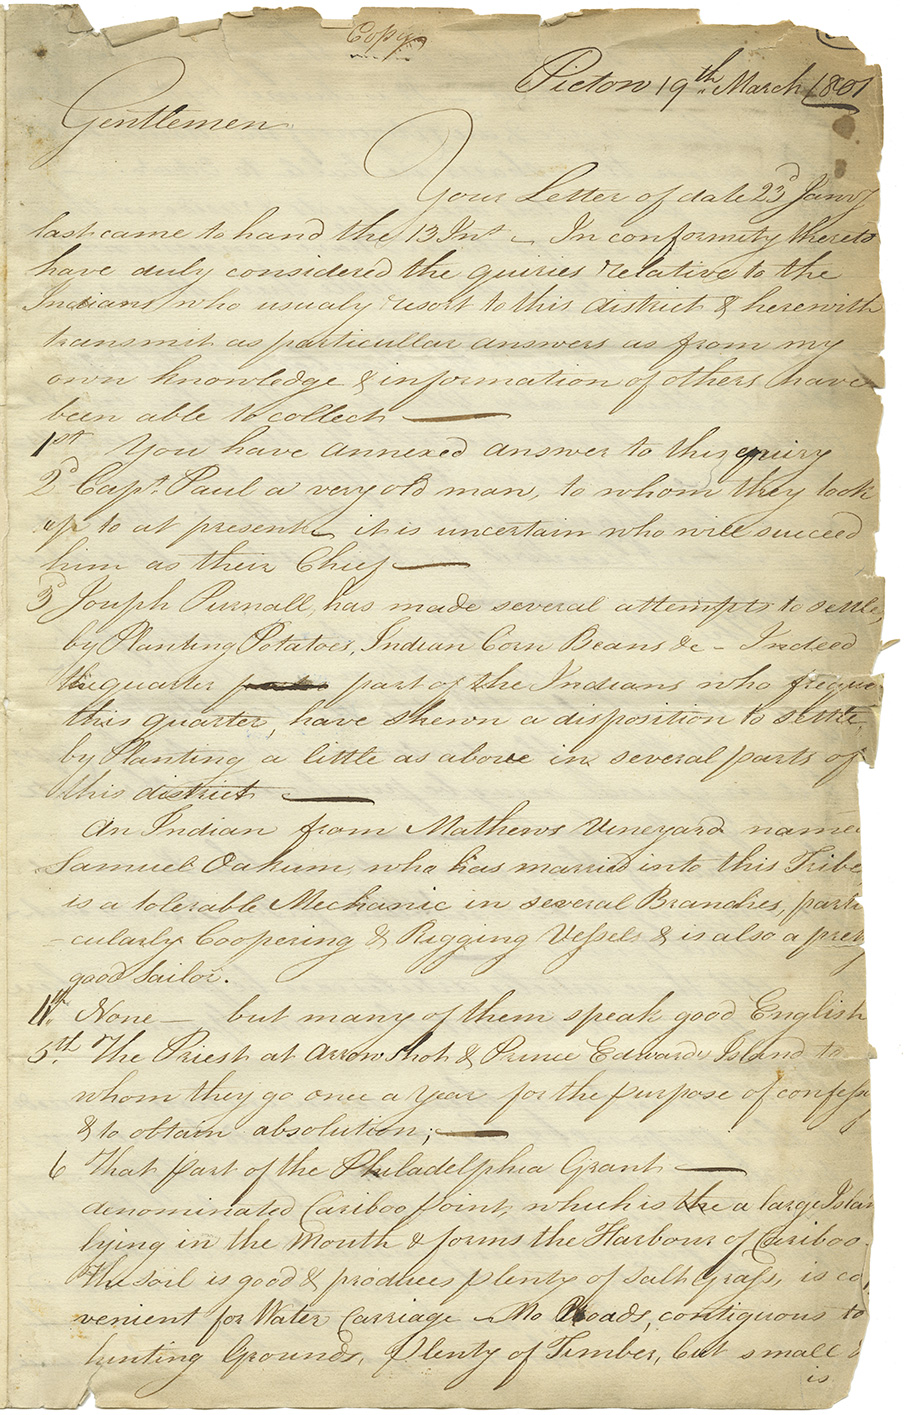 Copy
Picton 19th March 1801
Gentlemen
Your Letter of date 23d Janry
last came to hand the 13 Inst — In conformity thereto
have duly considered the quiries relative to the
Indians who usualy resort to this district & herewith
transmit as particullar answers as from my
own knowledge & information of others have
been able to collect —
1st You have annexed answer to this quiry
2d Capt. Paul a very old man, to whom they look
up to at present, it is uncertain who will succeed
him as their Chief —
3d Joseph Purnall, has made several attempts to settle,
by Planting Potatoes, Indian Corn Beans &c — Indeed
the quarter part of the Indians who freque
this quarter, have shewn a disposition to settle,
by Planting a little as above in several parts of
this district —
An Indian from Mathews Vineyard name
Samuel Oakum, who has married into this Tribe
is a tolerable Mechanic in several Branches, parti
-cularly Coopering & Rigging Vessels & is also a prety
good Sailor.
4th. None — but many of them speak good English
5th. The Priest at Arrowshot & Prince Edwards Island to
whom they go once a year for the purpose of confess
& to obtain absolution; —
6 That part of the Philadelphia Grant —
denominated Cariboo point, which is the a large Islan
lying in the Mouth & forms the Harbour of Cariboo
The soil is good & produces plenty of salt Grass, is co
venient for Water Carriage — No Roads, contiguous to
hunting Grounds, Plenty of Timber, but small &
is